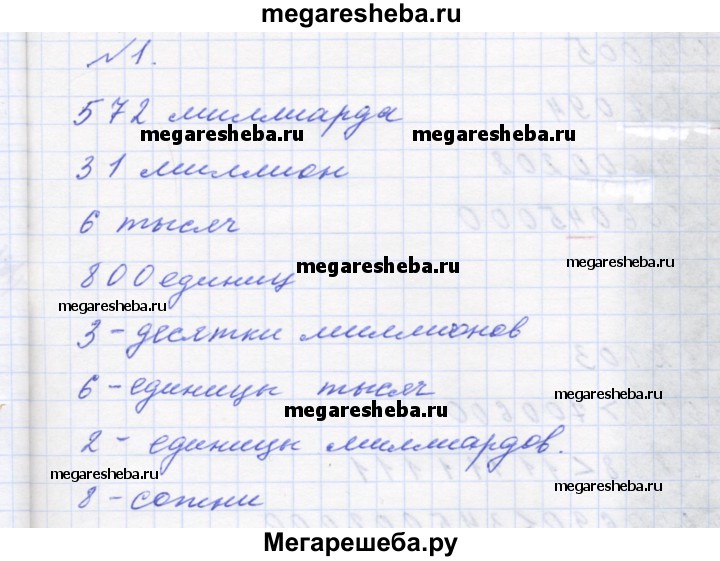 megaresheba.ru
№1.
572 миллиарды
megaresheba.ru megaresheba.ru
31 миллион
6 тысяч
800 единиц megaresheba.ru
megaresheba.ru megaresheba.ru
3 - десятки миллионов
6 - единицы тысяч megaresheba.ru
megaresheba.ru
2 - единицы миллиардов.
megaresheba.ru megaresheba.ru
8 - сотни
Мегарешеба.ру